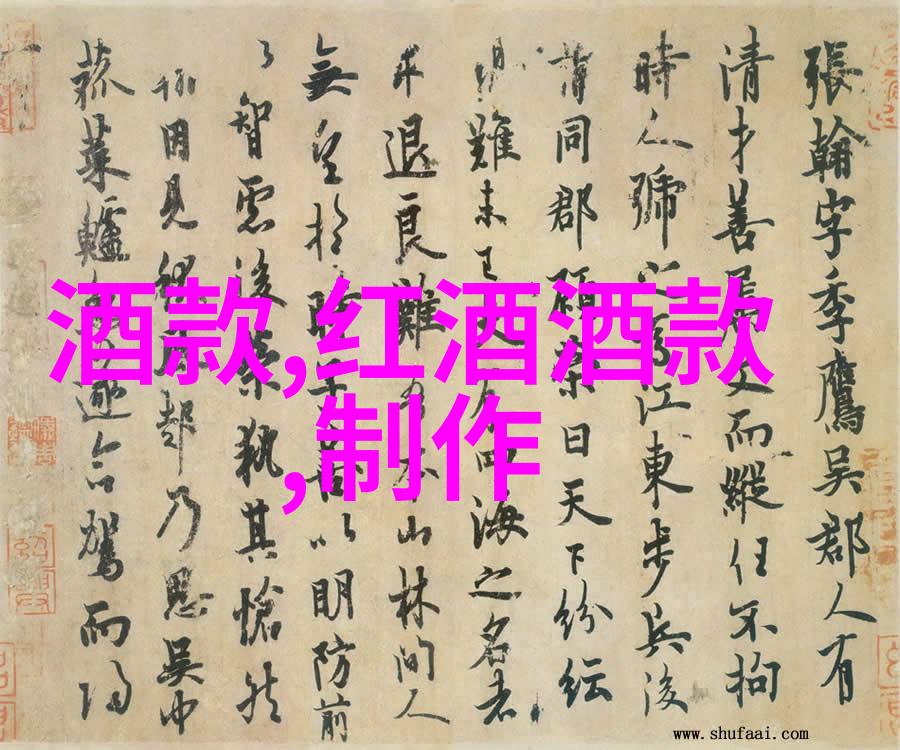 張翰字季鷹吳郡人有
清才善屬文而縱任不拘
時人號之為江東步兵後
同郡顧榮曰天下紛紜
難未已夫有四海之名者
求退良難吾本山林間人
無望於時子善以明防前
以智慮後榮執其愴然
翰因見秋風起乃思吳中
菰菜鱸魚遂命駕而歸
酒款,红酒酒款
,制作
www.shufaai.com